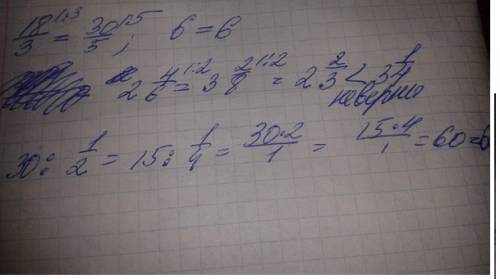 18/3 (:3 = 30/5 (:5 ; 6 = 6
2 4/6 (:2 = 3 2/8 (:2 = 2 2/3 < 3 1/4
неверно
30 : 1/2 = 15 : 1/4 = 30·2/1 = 15·4/1 = 60 = 6